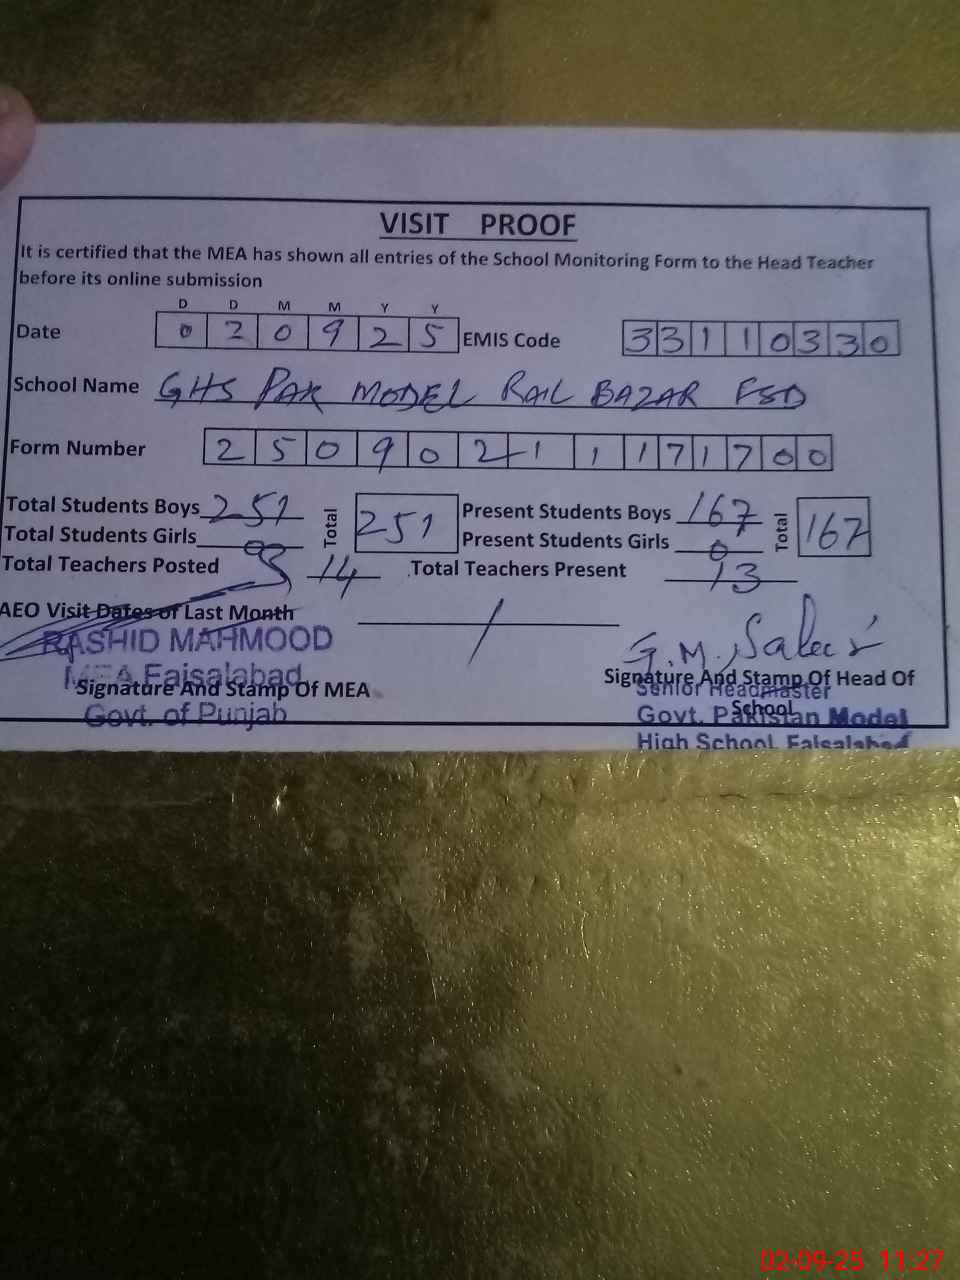 VISIT PROOF
It is certified that the MEA has shown all entries of the School Monitoring Form to the Head Teacher
before its online submission
D D M M Y Y
Date 0 2 0 9 2 5 EMIS Code 3 3 1 1 0 3 3 0
School Name GHS PAK MODEL RAIL BAZAR FSD
Form Number 2 5 0 9 0 2 1 1 1 7 1 7 0 0
Total Students Boys 251 Total 251 Present Students Boys 167 Total 167
Total Students Girls Present Students Girls 0
Total Teachers Posted 14 Total Teachers Present 13
AEO Visit Dates of Last Month /
RASHID MAHMOOD
MEA Faisalabad
Signature And Stamp Of MEA
Govt. of Punjab
G.M.
Signature And Stamp Of Head Of
School
Senior Headmaster
Govt. Pakistan Model
High School, Faisalabad
02-09-25 11:27